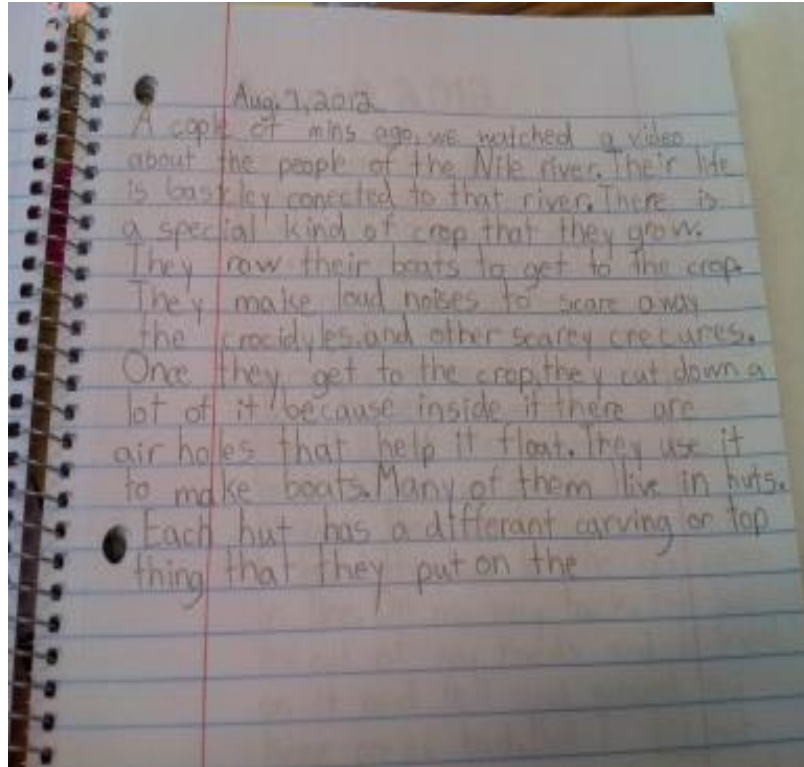 Aug. 7, 2012
A cople of mins ago, we watched a video
about the people of the Nile river. Their life
is basicley conected to that river. There is
a special kind of crop that they grow.
They row their boats to get to the crop.
They make loud noises to scare away
the crocidyles. and other scarey crecures.
Once they get to the crop, they cut down a
lot of it because inside it there are
air holes that help it float. They use it
to make boats. Many of them live in huts.
Each hut has a differant carving or top
thing that they put on the